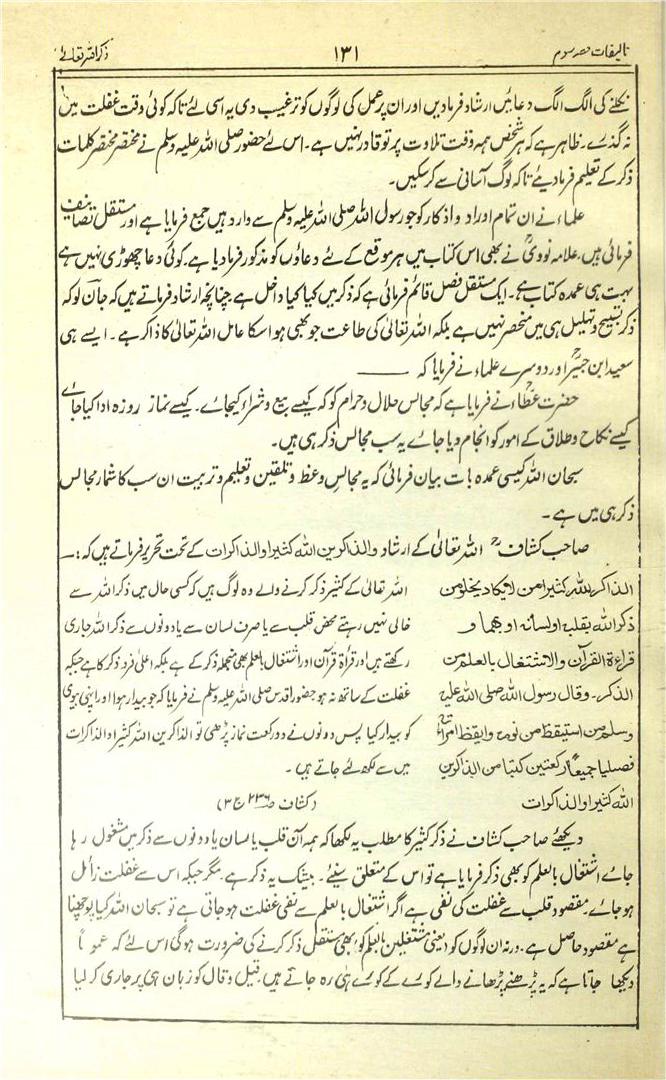 تالیفات حصہ سوم ۱۳۱ ذکر اللہ تعالےٰ
نکلنے کی الگ الگ دعائیں ارشاد فرمادیں اور ان پر عمل کی لوگوں کو ترغیب دی یہ اسی لئے تاکہ کوئی وقت غفلت میں
نہ گذرے۔ ظاہر ہے کہ ہر شخص ہمہ وقت تلاوت پر تو قادر نہیں ہے۔ اس لئے حضور صلی اللہ علیہ وسلم نے مختصر مختصر کلمات
ذکر کے تعلیم فرما دیئے تاکہ لوگ آسانی سے کر سکیں۔
علماء نے ان تمام اوراد و اذکار کو جو رسول اللہ صلی اللہ علیہ وسلم سے وارد ہیں جمع فرمایا ہے اور مستقل تصانیف
فرمائی ہیں۔ علامہ نوویؒ نے بھی اس کتاب میں ہر موقع کے لئے دعاؤں کو مذکور فرما دیا ہے۔ کوئی دعا چھوڑی نہیں ہے
بہت ہی عمدہ کتاب ہے۔ ایک مستقل فصل قائم فرمائی ہے کہ ذکر میں کیا کیا داخل ہے چنانچہ ارشاد فرماتے ہیں کہ جان لو کہ
ذکر تسبیح و تہلیل ہی میں منحصر نہیں ہے بلکہ اللہ تعالیٰ کی طاعت جو بھی ہو اسکا عامل اللہ تعالیٰ کا ذاکر ہے۔ ایسے ہی
سعید ابن جبیرؒ اور دوسرے علماء نے فرمایا کہ ———
حضرت عطاءؒ نے فرمایا ہے کہ مجالس حلال و حرام کو کہ کیسے بیع و شراء کیجائے۔ کیسے نماز روزہ ادا کیا جائے
کیسے نکاح و طلاق کے امور کو انجام دیا جائے یہ سب مجالس ذکر ہی ہیں۔
سبحان اللہ کیسی عمدہ بات بیان فرمائی کہ یہ مجالس وعظ و تلقین و تعلیم و تربیت ان سب کا شمار مجالس
ذکر ہی میں ہے۔
صاحب کشافؒ اللہ تعالیٰ کے ارشاد والذاکرین اللہ کثیرا والذاکرات کے تحت تحریر فرماتے ہیں کہ :۔
الذاکر للہ کثیرا من لایکاد یخلو من
ذکر اللہ بقلبہ او لسانہ او بھما و
قراءۃ القرآن والاشتغال بالعلم من
الذکر۔ وقال رسول اللہ صلی اللہ علیہ
وسلم من استیقظ من نومہ وایقظ امرأتہ
فصلیا جمیعاً رکعتین کتبا من الذاکرین
اللہ کثیرا والذاکرات
اللہ تعالیٰ کے کثیر ذکر کرنے والے وہ لوگ ہیں کہ کسی حال میں ذکر اللہ سے
خالی نہیں رہتے محض قلب سے یا صرف لسان سے یا دونوں سے ذکر اللہ جاری
رکھتے ہیں اور قرأۃ قرآن اور اشتغال بالعلم بھی منجملہ ذکر کے ہے بلکہ اعلیٰ فرد ذکر کا ہے جبکہ
غفلت کے ساتھ نہ ہو حضور اقدس صلی اللہ علیہ وسلم نے فرمایا کہ جو بیدار ہوا اور اپنی بیوی
کو بیدار کیا پس دونوں نے دو رکعت نماز پڑھی تو الذاکرین اللہ کثیرا والذاکرات
میں سے لکھ لئے جاتے ہیں۔
(کشاف ص۲۳۶ ج۳)
دیکھئے صاحب کشاف نے ذکر کثیر کا مطلب یہ لکھا کہ ہمہ آن قلب یا لسان یا دونوں سے ذکر میں مشغول رہا
جائے اشتغال بالعلم کو بھی ذکر فرمایا ہے تو اس کے متعلق سنیئے۔ بیشک یہ ذکر ہے۔ مگر جبکہ اس سے غفلت زائل
ہو جائے۔ مقصود قلب سے غفلت کی نفی ہے اگر اشتغال بالعلم سے نفی غفلت ہو جاتی ہے تو سبحان اللہ کیا پوچھنا
ہے مقصود حاصل ہے۔ ورنہ ان لوگوں کو (یعنی مشتغلین بالعلم کو) بھی مستقل ذکر کرنے کی ضرورت ہوگی اس لئے کہ عموماً
دیکھا جاتا ہے کہ یہ پڑھنے پڑھانے والے کورے کے کورے ہی رہ جاتے ہیں۔ قیل و قال کو زبان ہی پر جاری کر لیا